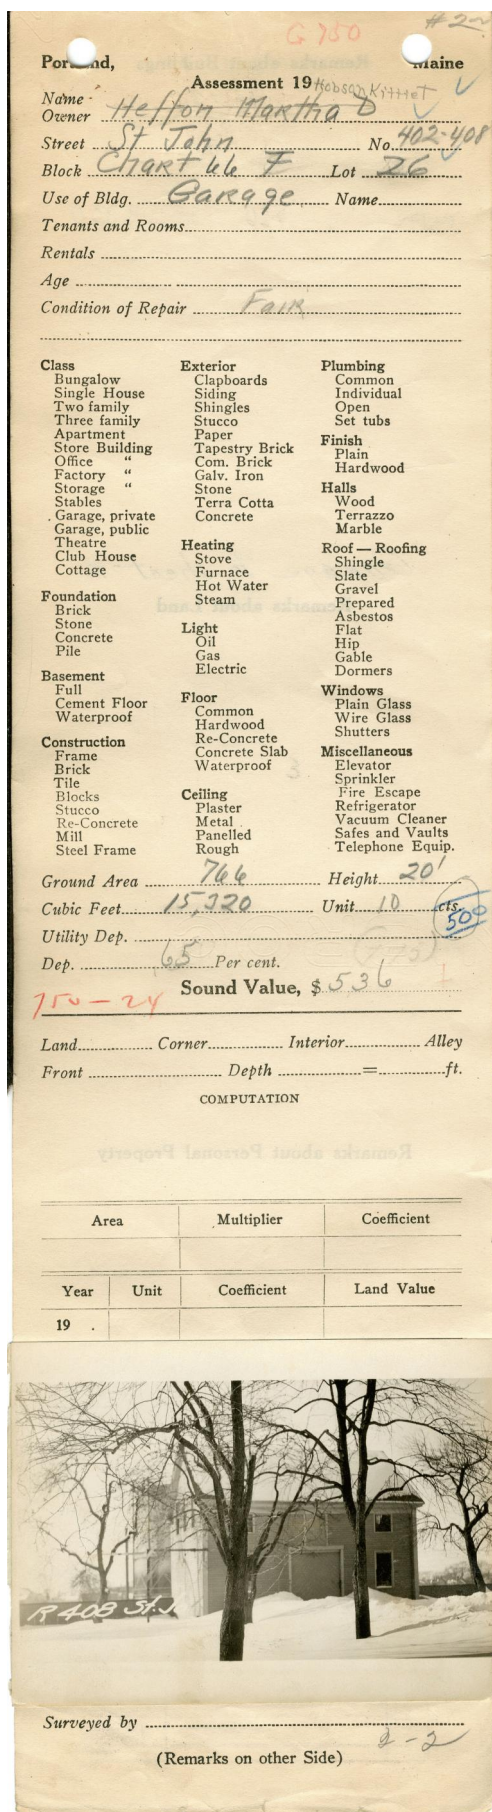 G 750 #2~
Portland, Maine
Assessment 19
Name Hobson Kittie T
Owner Heffon Martha D
Street St John No. 402-408
Block Chart 66 F Lot 26
Use of Bldg. Garage Name
Tenants and Rooms
Rentals
Age
Condition of Repair Fair
Class
Bungalow
Single House
Two family
Three family
Apartment
Store Building
Office "
Factory "
Storage "
Stables
Garage, private
Garage, public
Theatre
Club House
Cottage
Foundation
Brick
Stone
Concrete
Pile
Basement
Full
Cement Floor
Waterproof
Construction
Frame
Brick
Tile
Blocks
Stucco
Re-Concrete
Mill
Steel Frame
Exterior
Clapboards
Siding
Shingles
Stucco
Paper
Tapestry Brick
Com. Brick
Galv. Iron
Stone
Terra Cotta
Concrete
Heating
Stove
Furnace
Hot Water
Steam
Light
Oil
Gas
Electric
Floor
Common
Hardwood
Re-Concrete
Concrete Slab
Waterproof
Ceiling
Plaster
Metal
Panelled
Rough
Plumbing
Common
Individual
Open
Set tubs
Finish
Plain
Hardwood
Halls
Wood
Terrazzo
Marble
Roof — Roofing
Shingle
Slate
Gravel
Prepared
Asbestos
Flat
Hip
Gable
Dormers
Windows
Plain Glass
Wire Glass
Shutters
Miscellaneous
Elevator
Sprinkler
Fire Escape
Refrigerator
Vacuum Cleaner
Safes and Vaults
Telephone Equip.
Ground Area 766 Height 20'
Cubic Feet 15,320 Unit 10 cts.
500
Utility Dep.
(775)
Dep. 65 Per cent.
Sound Value, $ 536
750 — 24
Land Corner Interior Alley
Front Depth = ft.
COMPUTATION
Remarks about Personal Property
Area Multiplier Coefficient
Year Unit Coefficient Land Value
19 .
R 408 St. J
Surveyed by
2-2
(Remarks on other Side)